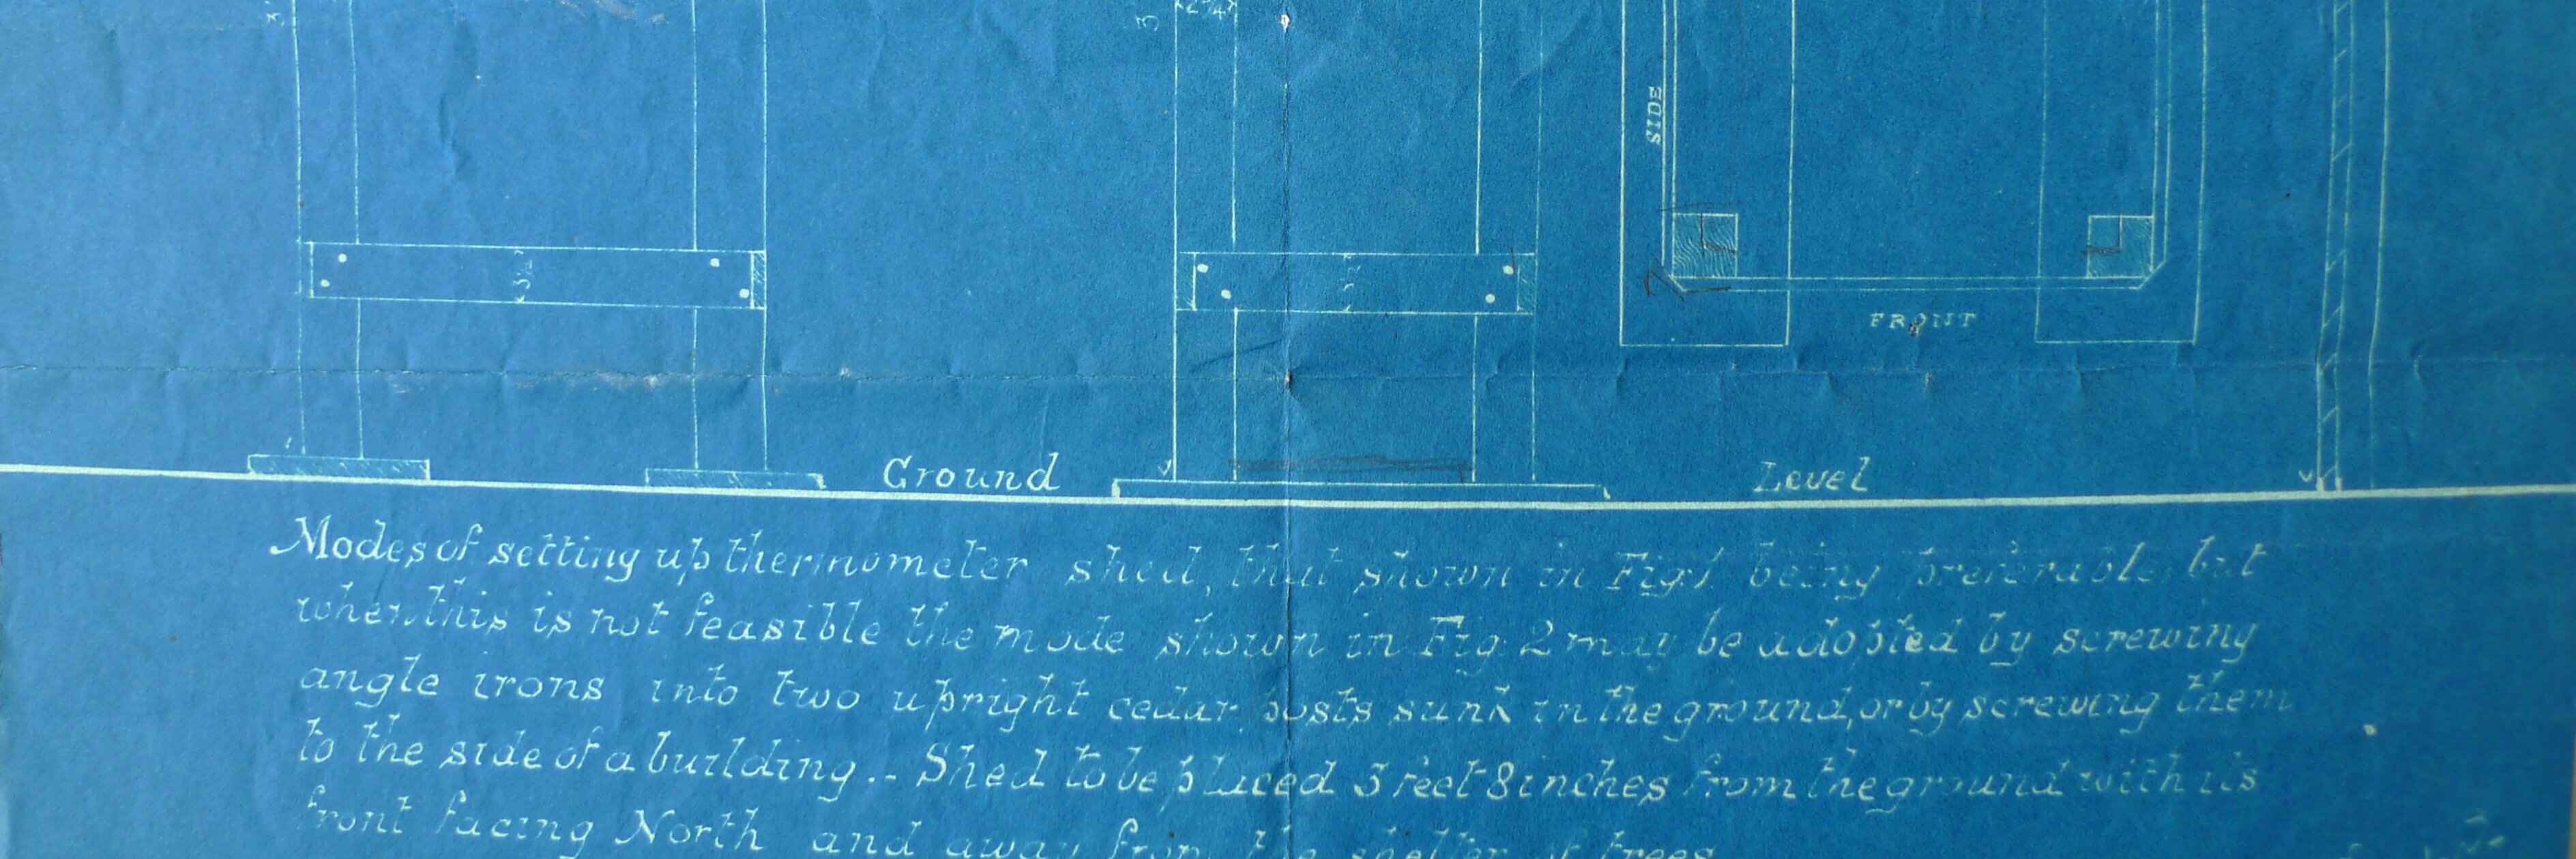 2¼
3
3
SIDE
3½
FRONT
Ground Level
Modes of setting up thermometer shed, that shown in Fig 1 being preferable, but
when this is not feasible the mode shown in Fig 2 may be adopted by screwing
angle irons into two upright cedar posts sunk in the ground, or by screwing them
to the side of a building.- Shed to be placed 3 feet 8 inches from the ground with its
front facing North and away from the shelter of trees